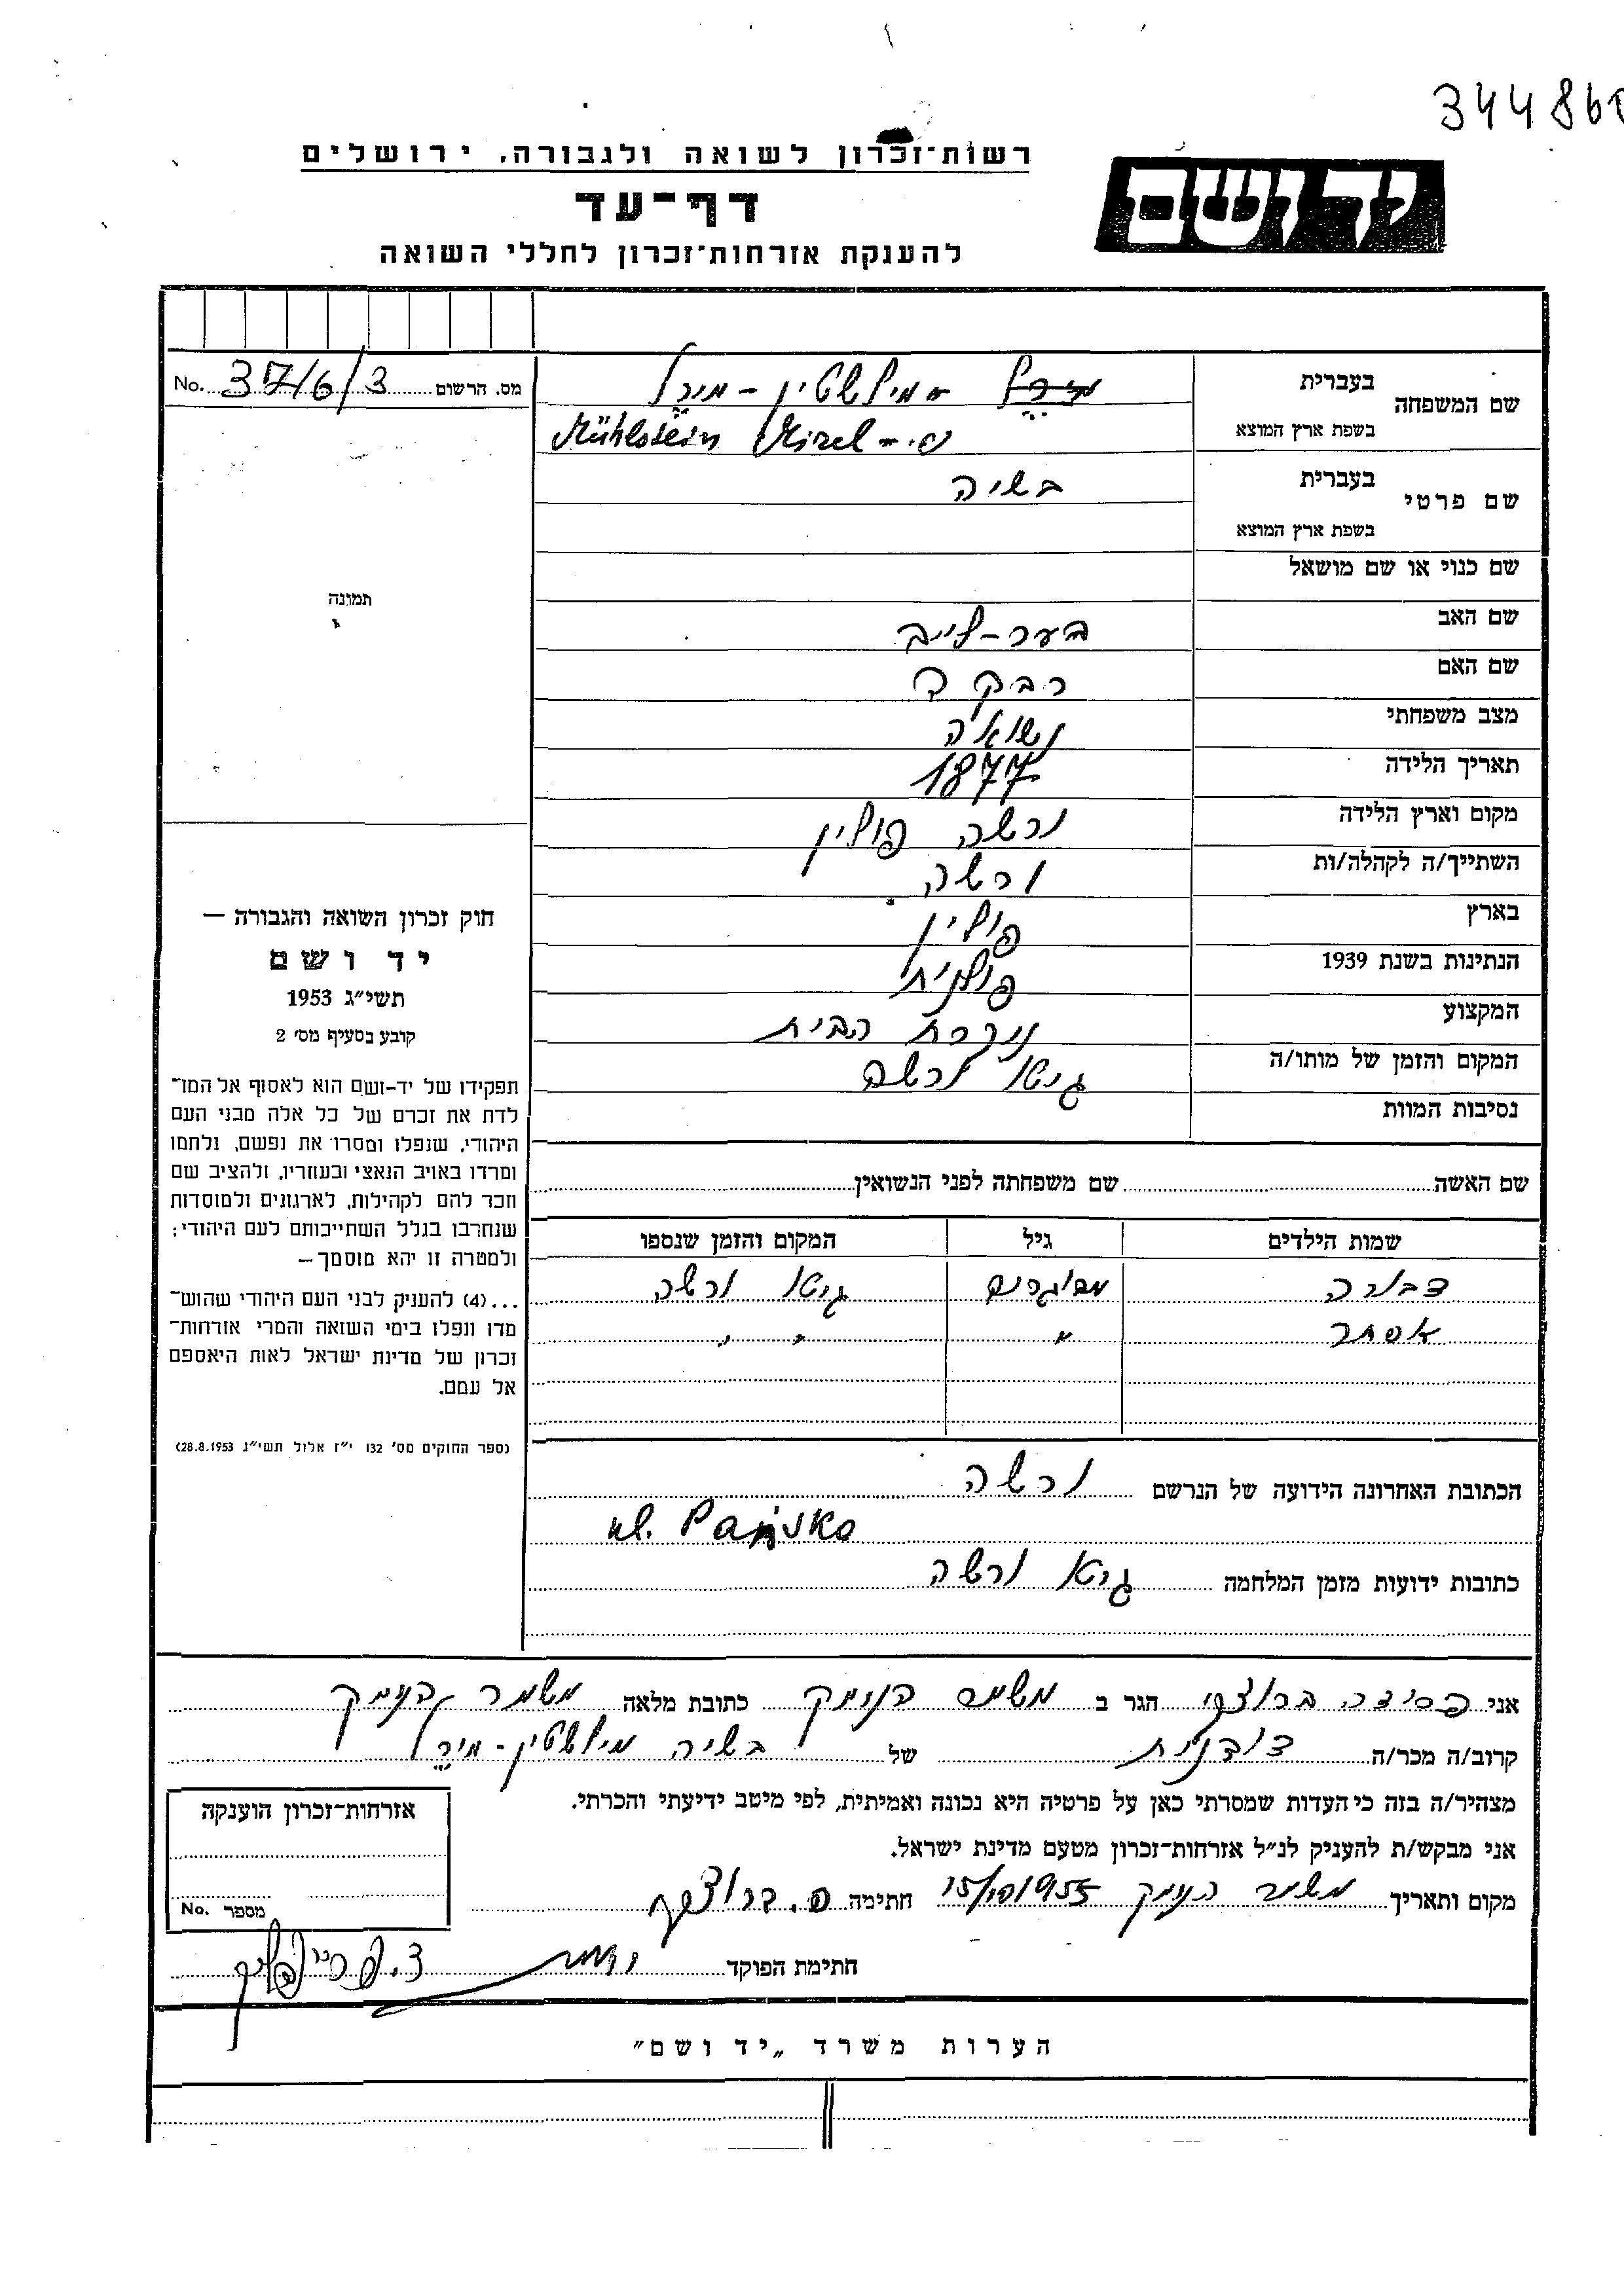 344860
רשות־זכרון לשואה ולגבורה, ירושלים
יד ושם
דף־עד
להענקת אזרחות־זכרון לחללי השואה
מס. הרשום 37/6/3 No.
שם המשפחה
בעברית מירל - מילשטיין - מירל
בשפת ארץ המוצא Mühlstein Mirel
שם פרטי
בעברית בשיה
בשפת ארץ המוצא
שם כנוי או שם מושאל
שם האב בער-לייב
שם האם רבקה
מצב משפחתי נשואה
תאריך הלידה 1877
מקום וארץ הלידה ורשה פולין
השתייך/ה לקהלה/ות ורשה
בארץ פולין
הנתינות בשנת 1939 פולנית
המקצוע עקרת הבית
המקום והזמן של מותו/ה גיטו ורשה
נסיבות המוות
תמונה
חוק זכרון השואה והגבורה —
יד ושם
תשי״ג 1953
קובע בסעיף מס׳ 2
תפקידו של יד-ושם הוא לאסוף אל המו־
לדת את זכרם של כל אלה מבני העם
היהודי, שנפלו ומסרו את נפשם, נלחמו
ומרדו באויב הנאצי ובעוזריו, ולהציב שם
וזכר להם לקהילות, לארגונים ולמוסדות
שנחרבו בגלל השתייכותם לעם היהודי;
ולמטרה זו יהא מוסמך—
...(4) להעניק לבני העם היהודי שהוש־
מדו ונפלו בימי השואה והמרי אזרחות־
זכרון של מדינת ישראל לאות היאספם
אל עמם.
(ספר החוקים מס׳ 132 י״ז אלול תשי״ג 28.8.1953)
שם האשה שם משפחתה לפני הנשואין
שמות הילדים גיל המקום והזמן שנספו
דבורה מבוגרים גיטו ורשה
אסתר " " "
הכתובת האחרונה הידועה של הנרשם ורשה
ul. Pańska
כתובות ידועות מזמן המלחמה גיטו ורשה
אני הגר ב משמר העמק כתובת מלאה משמר העמק
קרוב/ה מכר/ה של בשיה מילשטיין-מירל
מצהיר/ה בזה כי העדות שמסרתי כאן על פרטיה היא נכונה ואמיתית, לפי מיטב ידיעתי והכרתי.
אני מבקש/ת להעניק לנ״ל אזרחות־זכרון מטעם מדינת ישראל.
מקום ותאריך משמר העמק 15/10 1955 חתימה
חתימת הפוקד
אזרחות־זכרון הוענקה
מספר No.
הערות משרד „יד ושם״